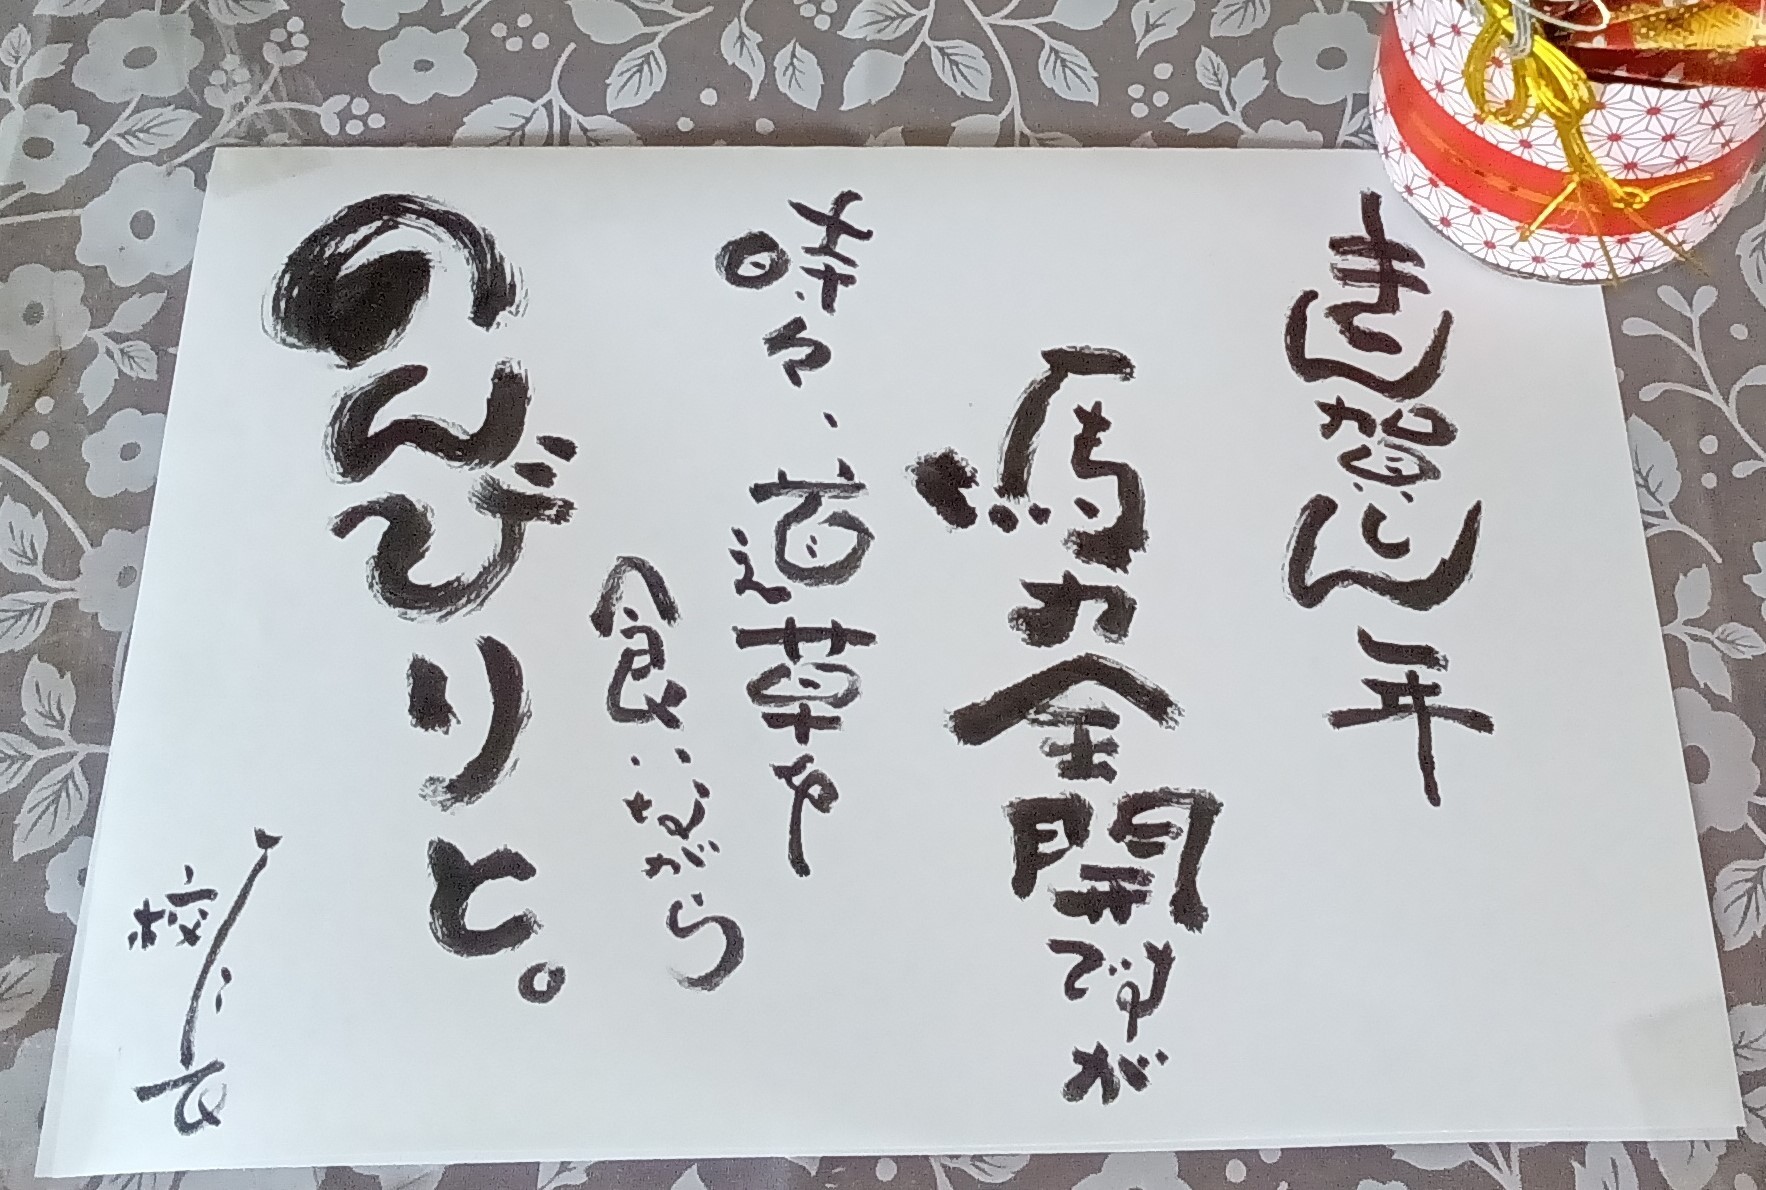 きん賀しん年
馬力全開ですが
時々、道草や
食いながら
のんびりと。